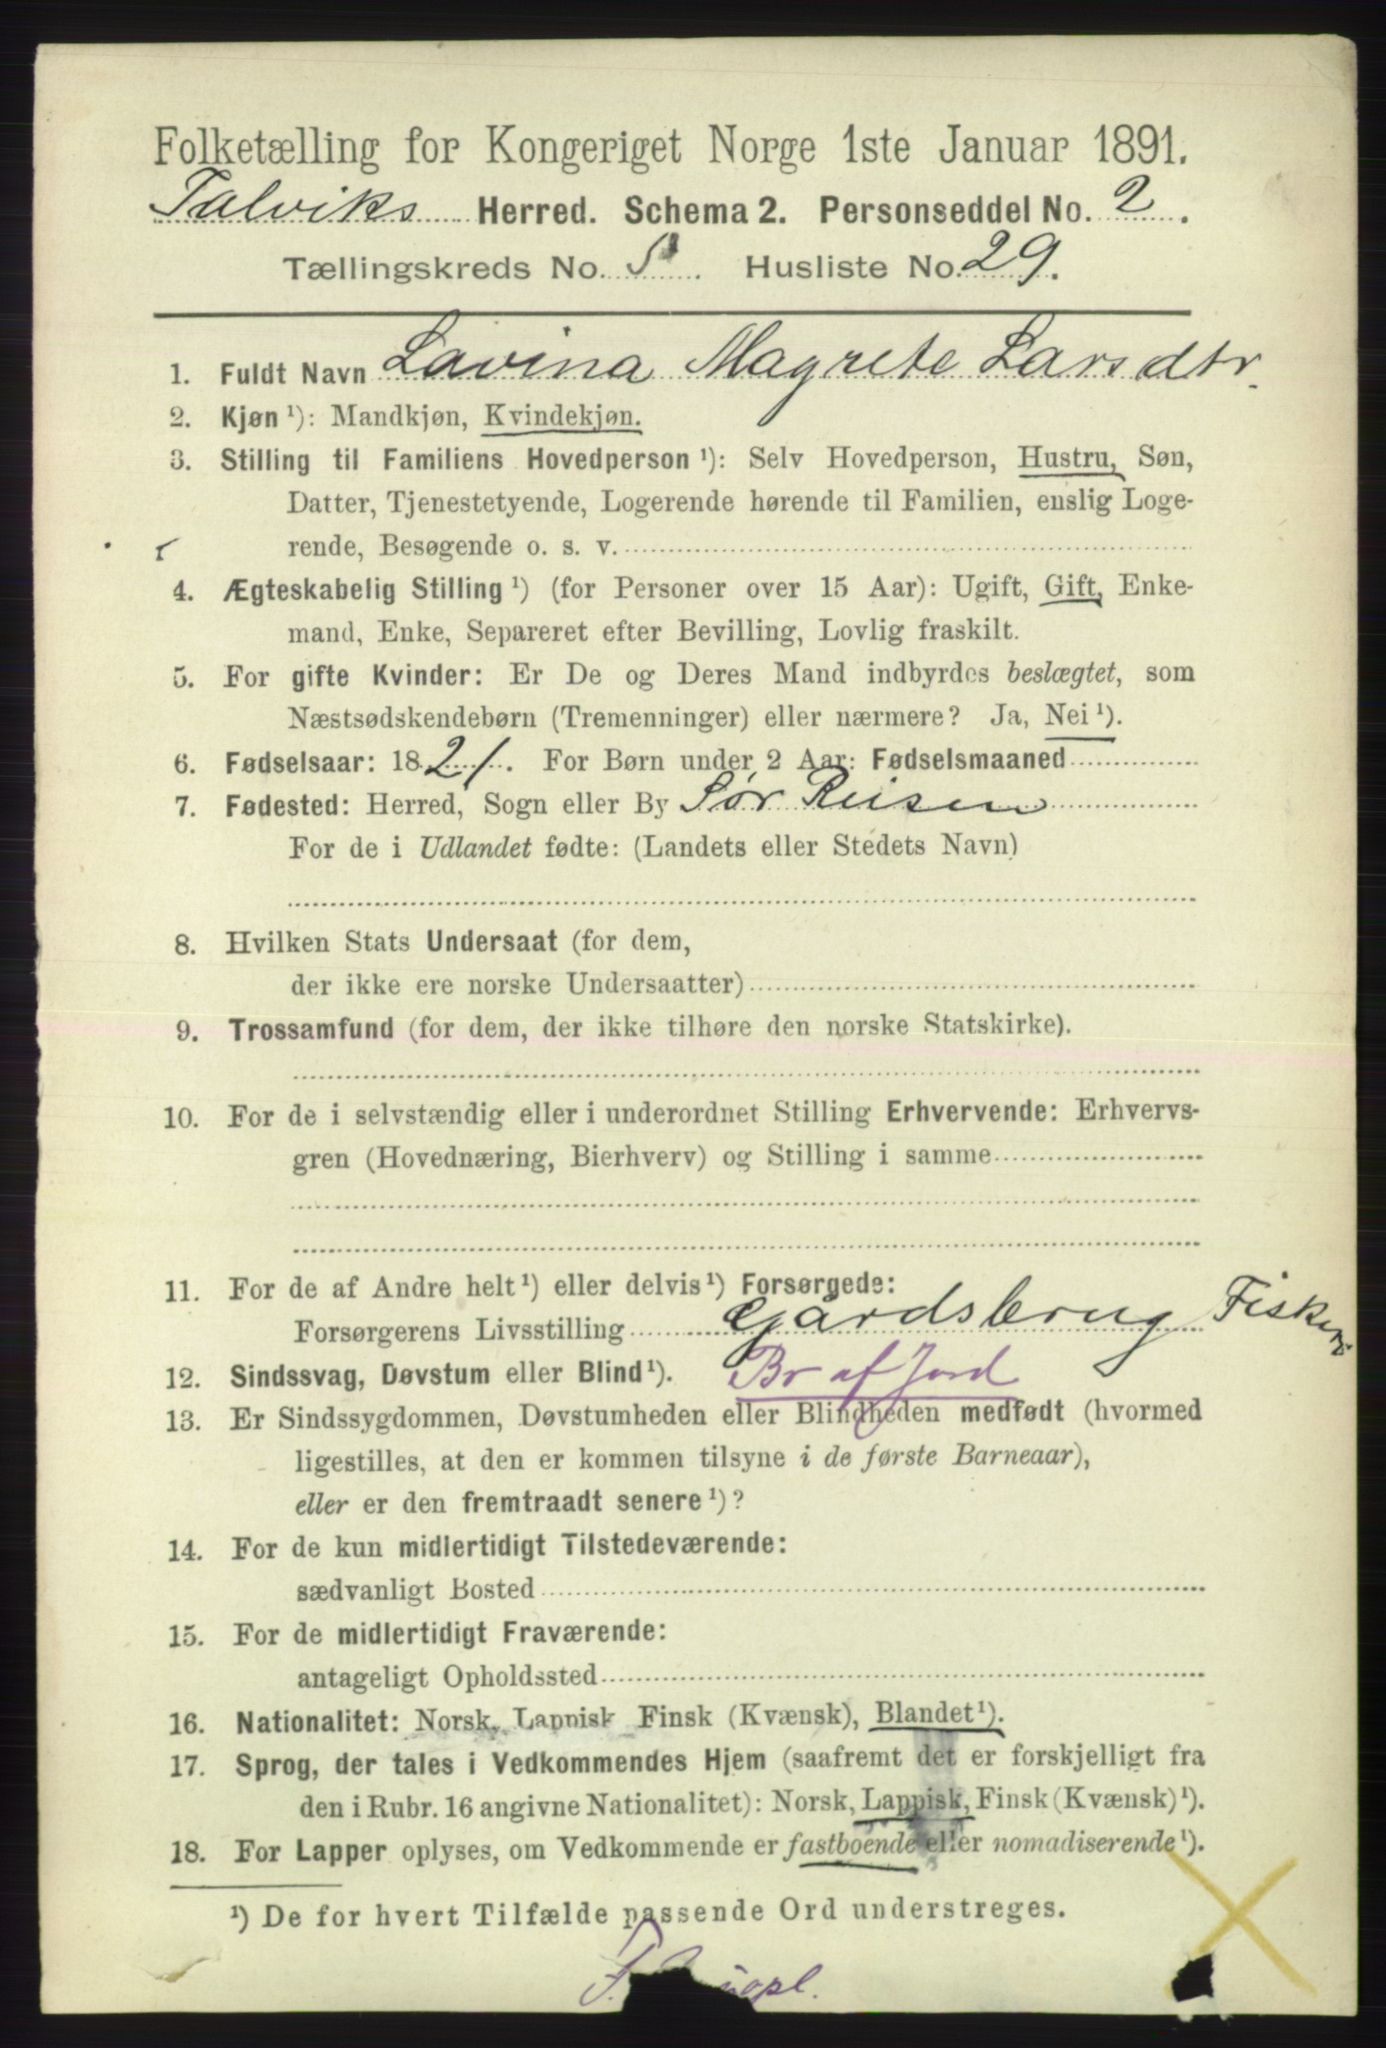 Folketælling for Kongeriget Norge 1ste Januar 1891.
Talviks Herred. Schema 2. Personseddel No. 2.
Tællingskreds No. 5. Husliste No. 29.
1. Fuldt Navn Lavina Magrete Larsdtr.
2. Kjøn ¹): Mandkjøn, Kvindekjøn.
3. Stilling til Familiens Hovedperson ¹): Selv Hovedperson, Hustru, Søn,
Datter, Tjenestetyende, Logerende hørende til Familien, enslig Loge-
rende, Besøgende o. s. v.
4. Ægteskabelig Stilling ¹) (for Personer over 15 Aar): Ugift, Gift, Enke-
mand, Enke, Separeret efter Bevilling, Lovlig fraskilt.
5. For gifte Kvinder: Er De og Deres Mand indbyrdes beslægtet, som
Næstsødskendebørn (Tremenninger) eller nærmere? Ja, Nei ¹).
6. Fødselsaar: 1821. For Børn under 2 Aar: Fødselsmaaned
7. Fødested: Herred, Sogn eller By Sør Reisen
For de i Udlandet fødte: (Landets eller Stedets Navn)
8. Hvilken Stats Undersaat (for dem,
der ikke ere norske Undersaatter)
9. Trossamfund (for dem, der ikke tilhøre den norske Statskirke).
10. For de i selvstændig eller i underordnet Stilling Erhvervende: Erhvervs-
gren (Hovednæring, Bierhverv) og Stilling i samme
11. For de af Andre helt ¹) eller delvis ¹) Forsørgede:
Forsørgerens Livsstilling Gårdsbrug Fiskeri
12. Sindssvag, Døvstum eller Blind ¹). Br af Jord
13. Er Sindssygdommen, Døvstumheden eller Blindheden medfødt (hvormed
ligestilles, at den er kommen tilsyne i de første Barneaar),
eller er den fremtraadt senere ¹)?
14. For de kun midlertidigt Tilstedeværende:
sædvanligt Bosted
15. For de midlertidigt Fraværende:
antageligt Opholdssted
16. Nationalitet: Norsk, Lappisk Finsk (Kvænsk), Blandet ¹).
17. Sprog, der tales i Vedkommendes Hjem (saafremt det er forskjelligt fra
den i Rubr. 16 angivne Nationalitet): Norsk, Lappisk, Finsk (Kvænsk) ¹).
18. For Lapper oplyses, om Vedkommende er fastboende eller nomadiserende ¹).
¹) De for hvert Tilfælde passende Ord understreges.